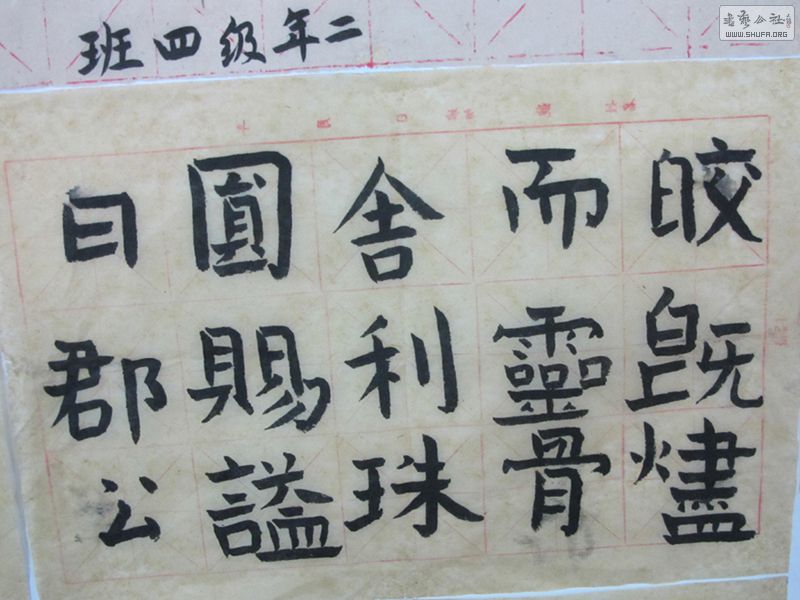 二年级四班
皎既燼
而靈骨
舍利珠
圓賜謚
曰郡公
書藝公社
WWW.SHUFA.ORG